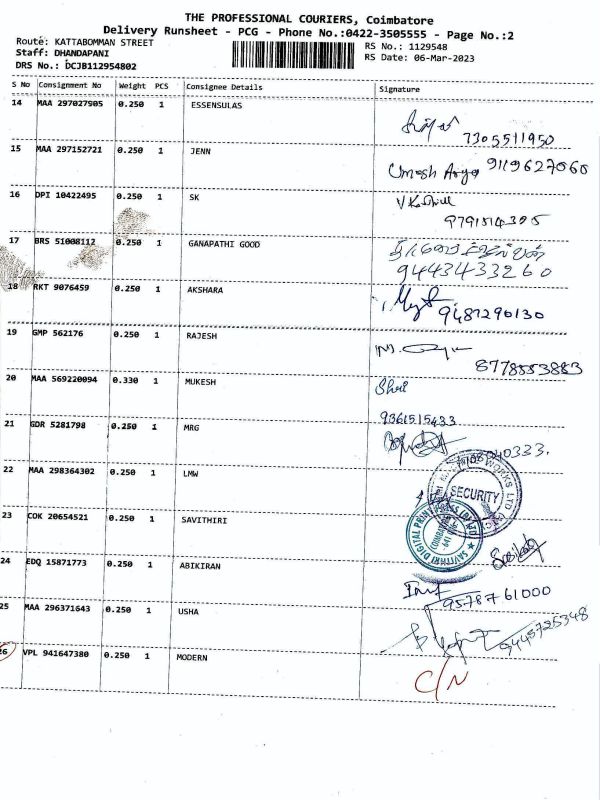 THE PROFESSIONAL COURIERS, Coimbatore
Delivery Runsheet - PCG - Phone No.:0422-3505555 - Page No.:2
Route: KATTABOMMAN STREET
Staff: DHANDAPANI
DRS No.: DCJB112954802
RS No.: 1129548
RS Date: 06-Mar-2023
S No Consignment No Weight PCS Consignee Details Signature
14 MAA 297027905 0.250 1 ESSENSULAS
7305511950
15 MAA 297152721 0.250 1 JENN
Umesh Arya 9119627060
16 DPI 10422495 0.250 1 SK
9791514395
17 BRS 51008112 0.250 1 GANAPATHI GOOD
9443433260
18 RKT 9076459 0.250 1 AKSHARA
9487290130
19 GMP 562176 0.250 1 RAJESH
8778553883
20 MAA 569220094 0.330 1 MUKESH
Shri
9361515433
21 GDR 5281798 0.250 1 MRG
22 MAA 298364302 0.250 1 LMW
SECURITY
23 COK 20654521 0.250 1 SAVITHIRI
SAVITHRI DIGITAL PRINT
24 EDQ 15871773 0.250 1 ABIKIRAN
95787 61000
25 MAA 296371643 0.250 1 USHA
9445725348
26 VPL 941647380 0.250 1 MODERN
C/N